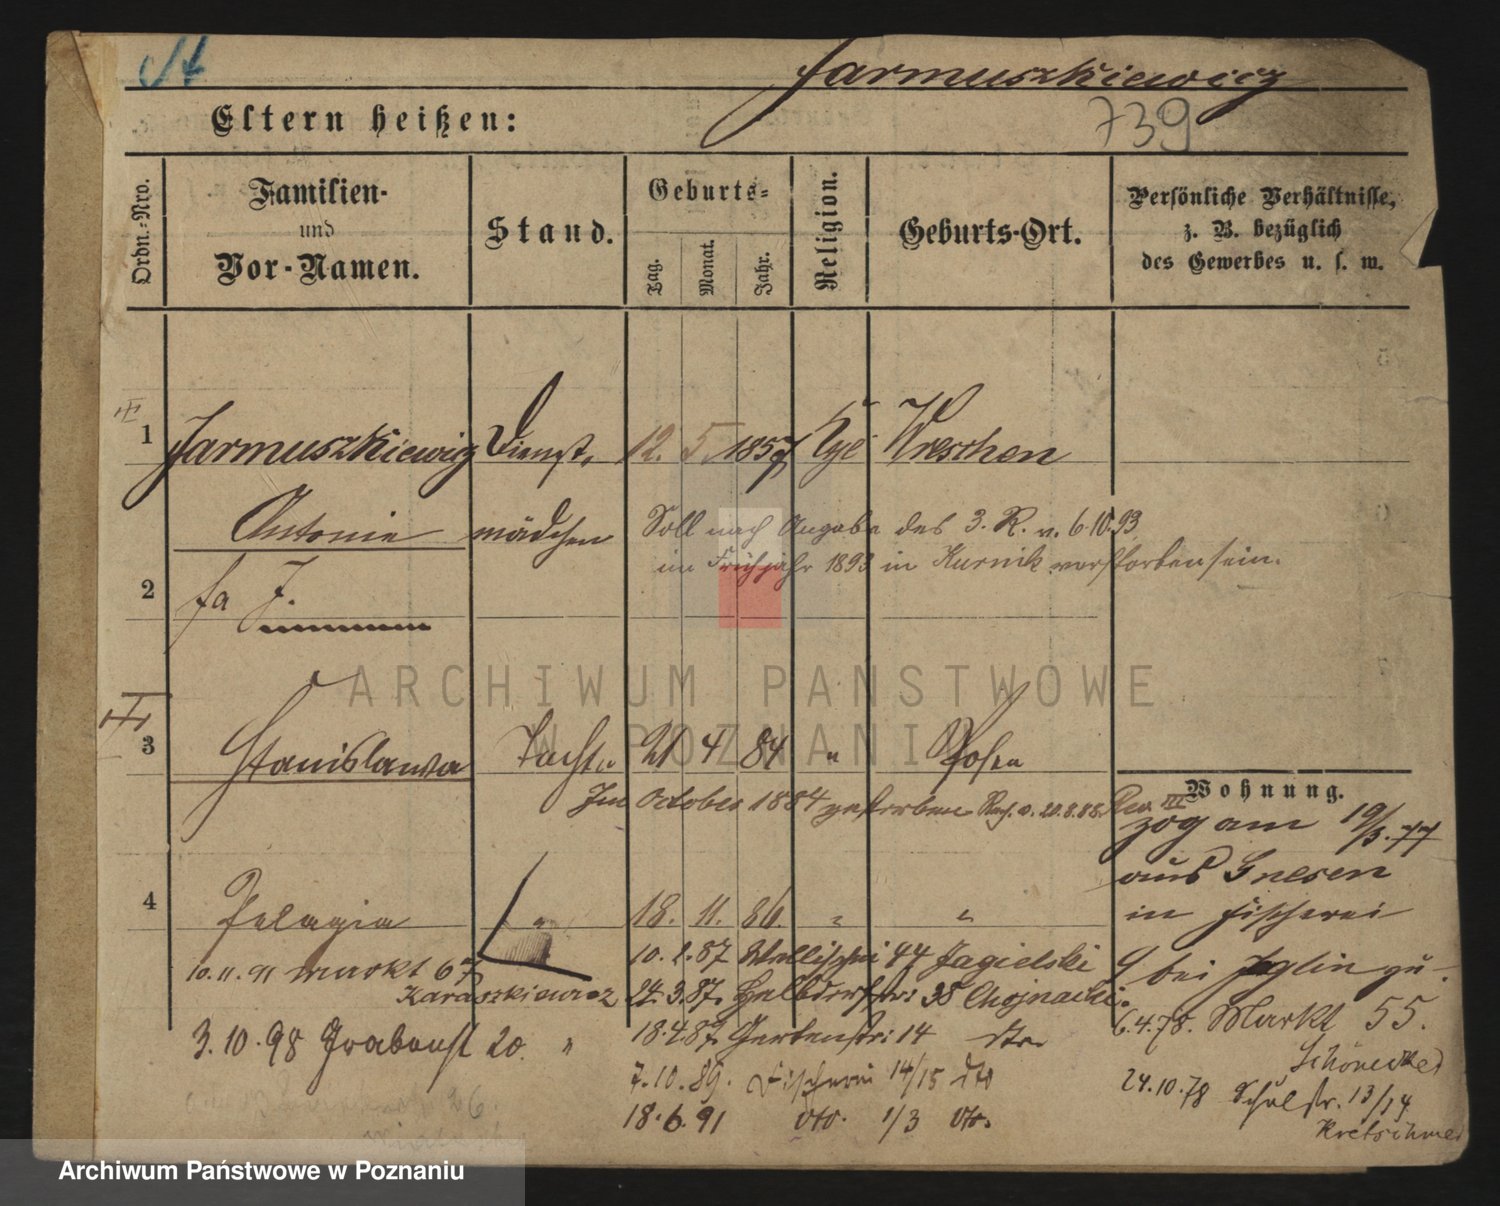 Jarmuszkiewicz
739
Eltern heißen:
Ordn.-Nro.
Familien-
und
Vor-Namen.
Stand.
Geburts-
Tag.
Monat.
Jahr.
Religion.
Geburts-Ort.
Persönliche Verhältnisse,
z. B. bezüglich
des Gewerbes u. s. w.
1 Jarmuszkiewicz Dienst- 12. 5. 1857 Wreschen
Antonie mädchen
Soll nach Angabe des 3. R. v. 6.10.93
im Frühjahr 1893 in Kurnik verstorben sein.
2 fa J.
ARCHIWUM PAŃSTWOWE
W POZNANIU
3 Stanislawa Tochter 21 4 84 " Posen
Im October 1884 gestorben 20.8.88. Rev. III
Wohnung.
zog am 19/3.77
aus Gnesen
in Fischerei
9 bei
6.4.78. Markt 55.
24.10.78 Schulstr. 13/14
Kretschmer
4 Pelagia " 18. 11. 86. " "
10.11.91 Markt 67
Karaszkiewicz
3.10.98 Grabenst 20. "
10.1.87 Wallischei 44 Jagielski
24.3.87. Halbdorfstr: 38 Chojnacki.
18.4.87. Gerberstr: 14 dto.
7.10.89. Fischerei 14/15 dto
18.6.91 dto. 1/3 dto.
Archiwum Państwowe w Poznaniu